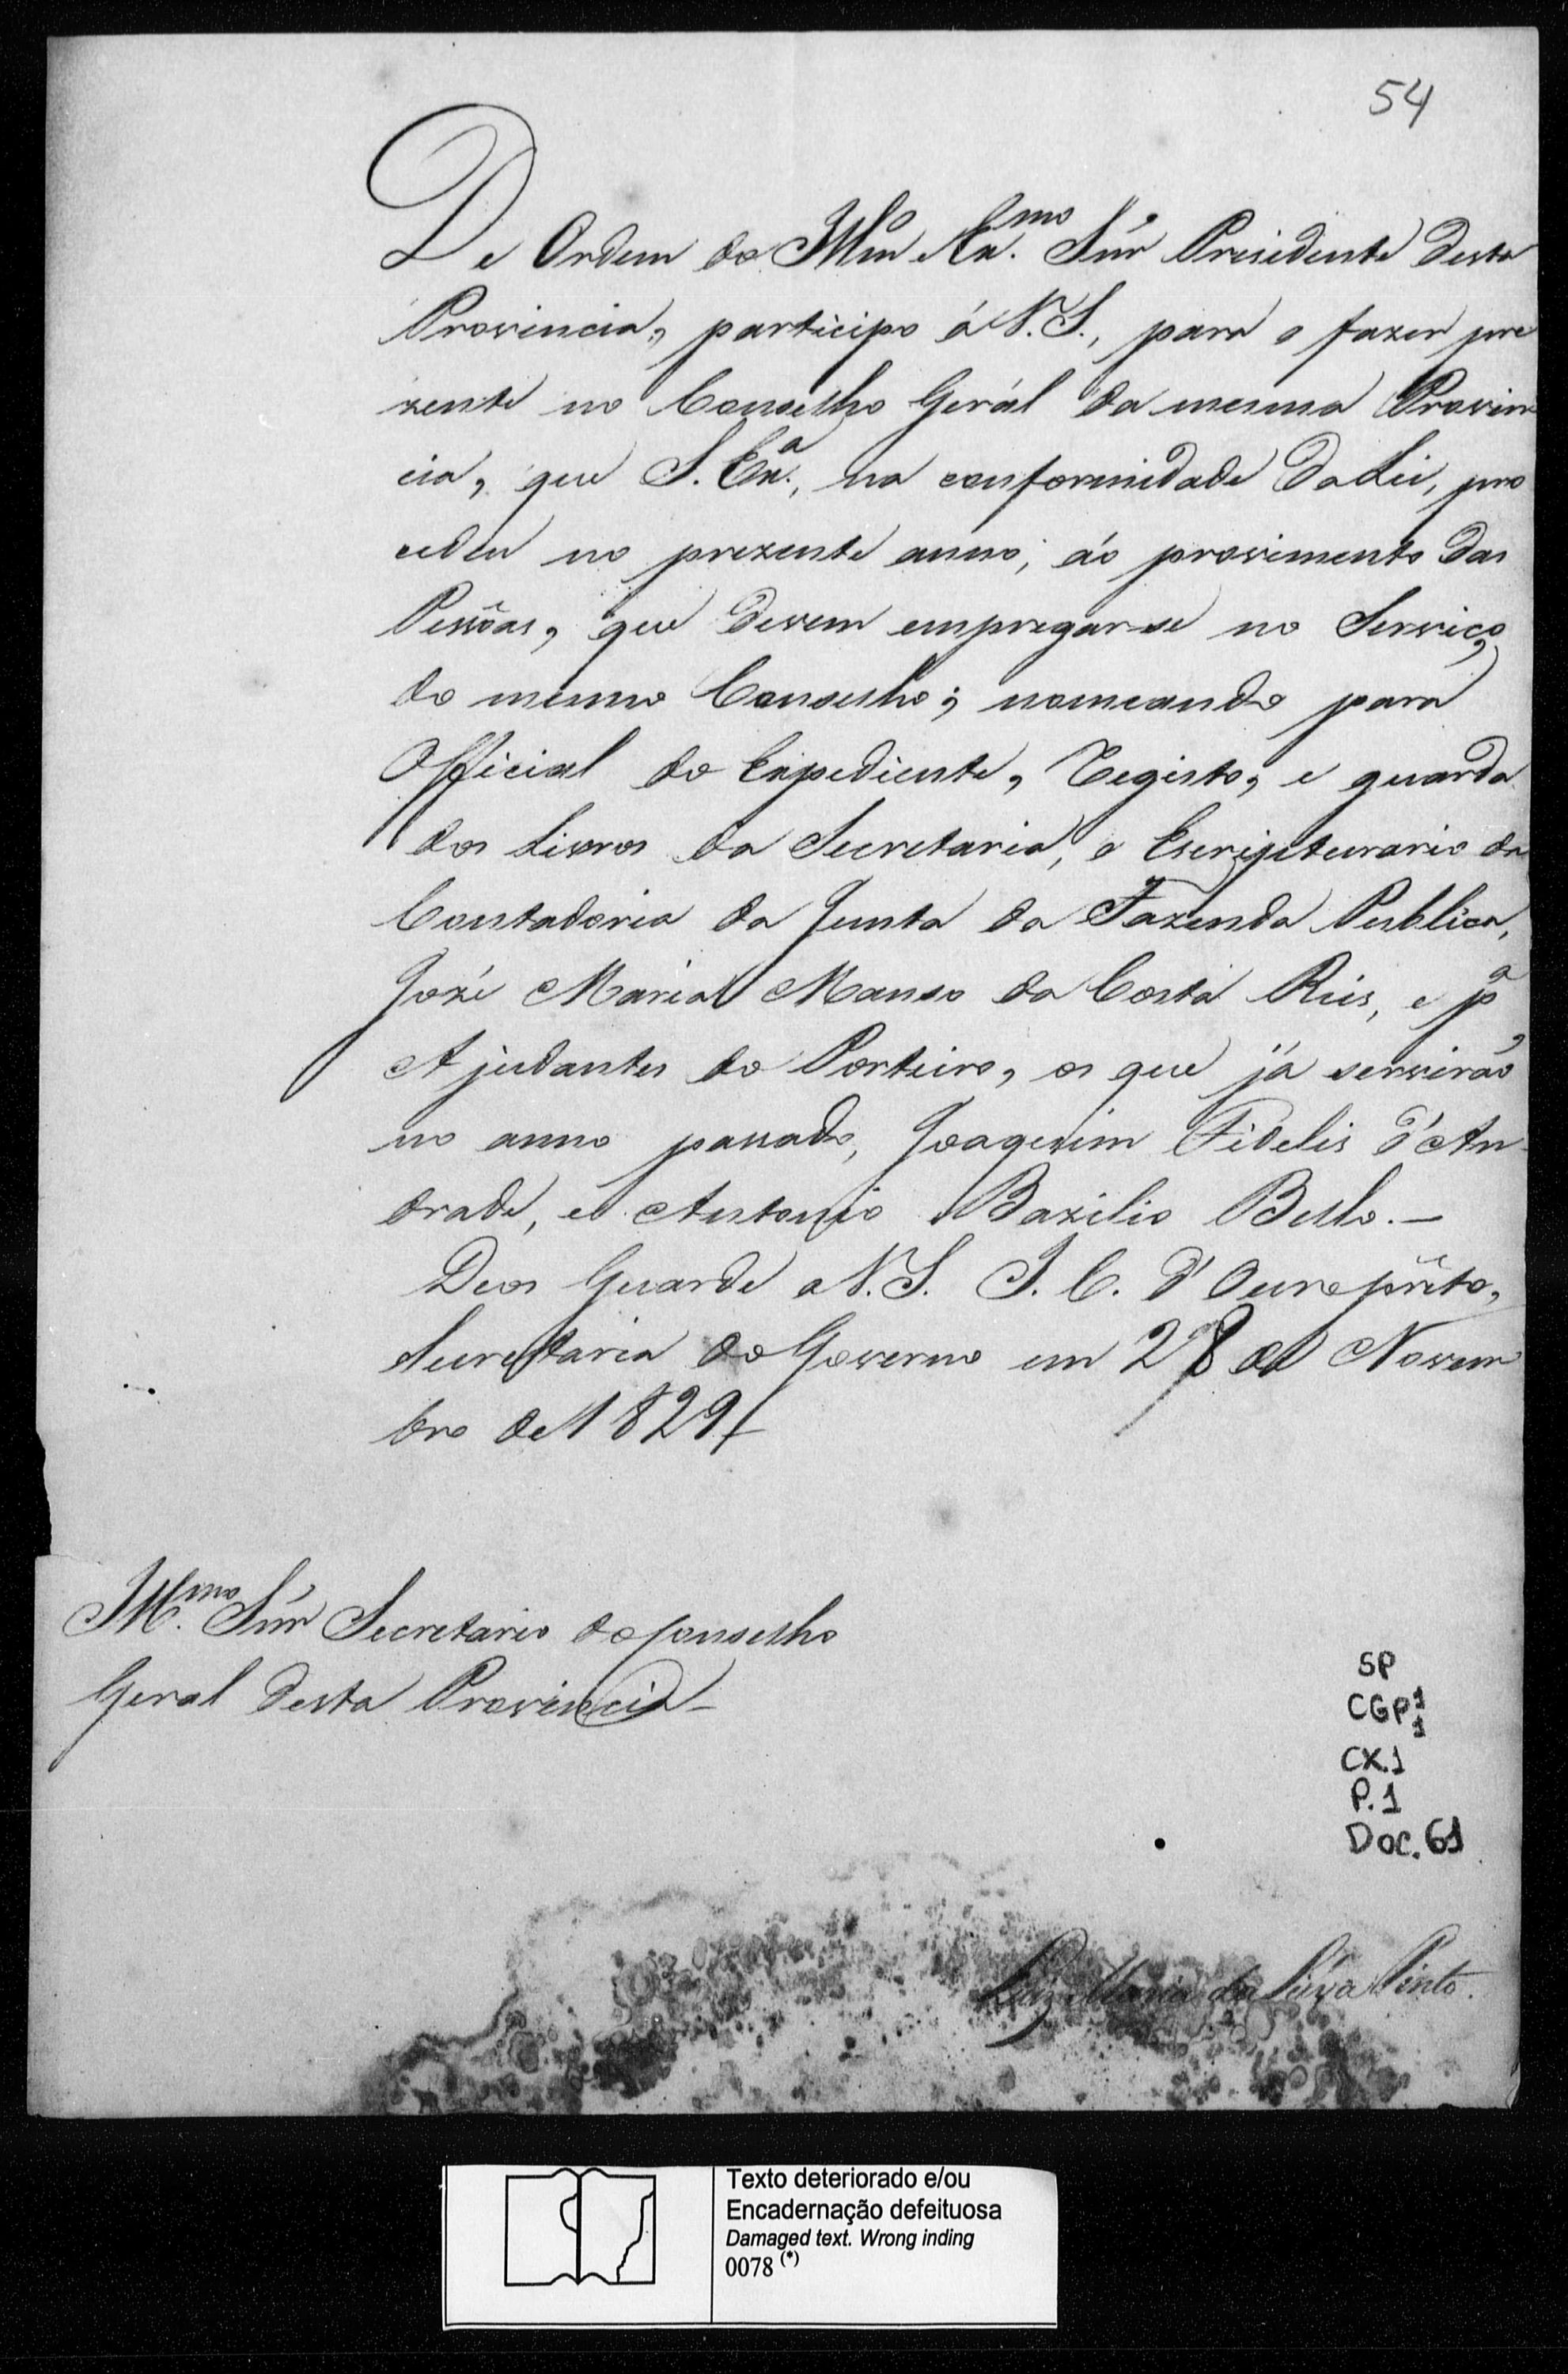 54
De Ordem do Illmo Exmo. Snr Presidente desta
Provincia, participo á V. S., para o fazer pre
zente no Conselho Gerál da mesma Provin
cia, que S. Exa., na conformidade da Lei, pro
cedeu no prezente anno, áo provimento das
Pessôas, que devem empregar-se no Serviço
do mesmo Conselho; nomeando para
Official do Expediente, Registo, e guarda
dos Livros da Secretaria, o Escripturario da
Contadoria da Junta da Fazenda Publica,
Jozé Maria Manso da Costa Reis, e pa
Ajudantes do Porteiro, os que já servirão
no anno passado, Joaquim Fidelis d'An
drade, e Antonio Bazilio Bello. —
Deos Guarde a V. S. I. C. d'Ouro prêto,
Secretaria do Governo em 28 de Novem
bro de 1829
Illmo. Snr Secretario do Conselho
Geral desta Provincia —
SP
CGP 1
1
CX.1
P.1
Doc. 61
Luiz Maria da Silva Pinto.
Texto deteriorado e/ou
Encadernação defeituosa
Damaged text. Wrong inding
0078 (*)